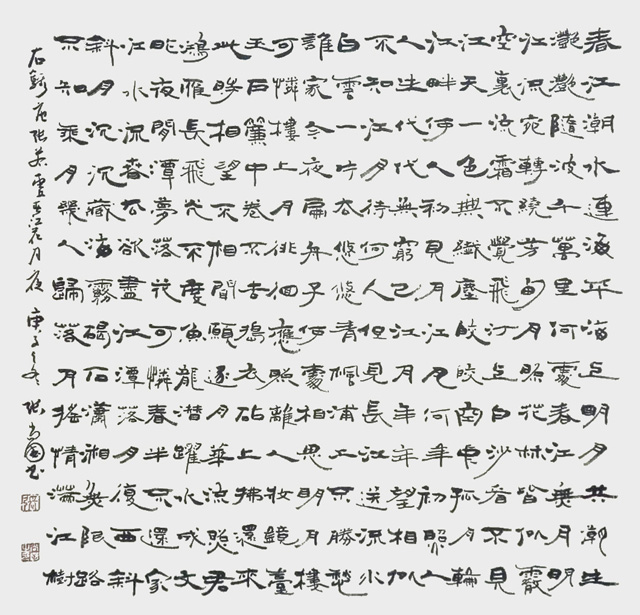 春江潮水連海平海上明月共潮生
灩灩隨波千萬里何處春江無月明
江流宛轉繞芳甸月照花林皆似霰
空裏流霜不覺飛汀上白沙看不見
江天一色無纖塵皎皎空中孤月輪
江畔何人初見月江月何年初照人
人生代代無窮已江月年年望相似
不知江月待何人但見長江送流水
白雲一片去悠悠青楓浦上不勝愁
誰家今夜扁舟子何處相思明月樓
可憐樓上月徘徊應照離人妝鏡臺
玉戶簾中卷不去擣衣砧上拂還來
此時相望不相聞願逐月華流照君
鴻雁長飛光不度魚龍潛躍水成文
昨夜閒潭夢落花可憐春半不還家
江水流春去欲盡江潭落月復西斜
斜月沉沉藏海霧碣石瀟湘無限路
不知乘月幾人歸落月搖情滿江樹
右錄唐張若虛春江花月夜 庚子之冬 張國書